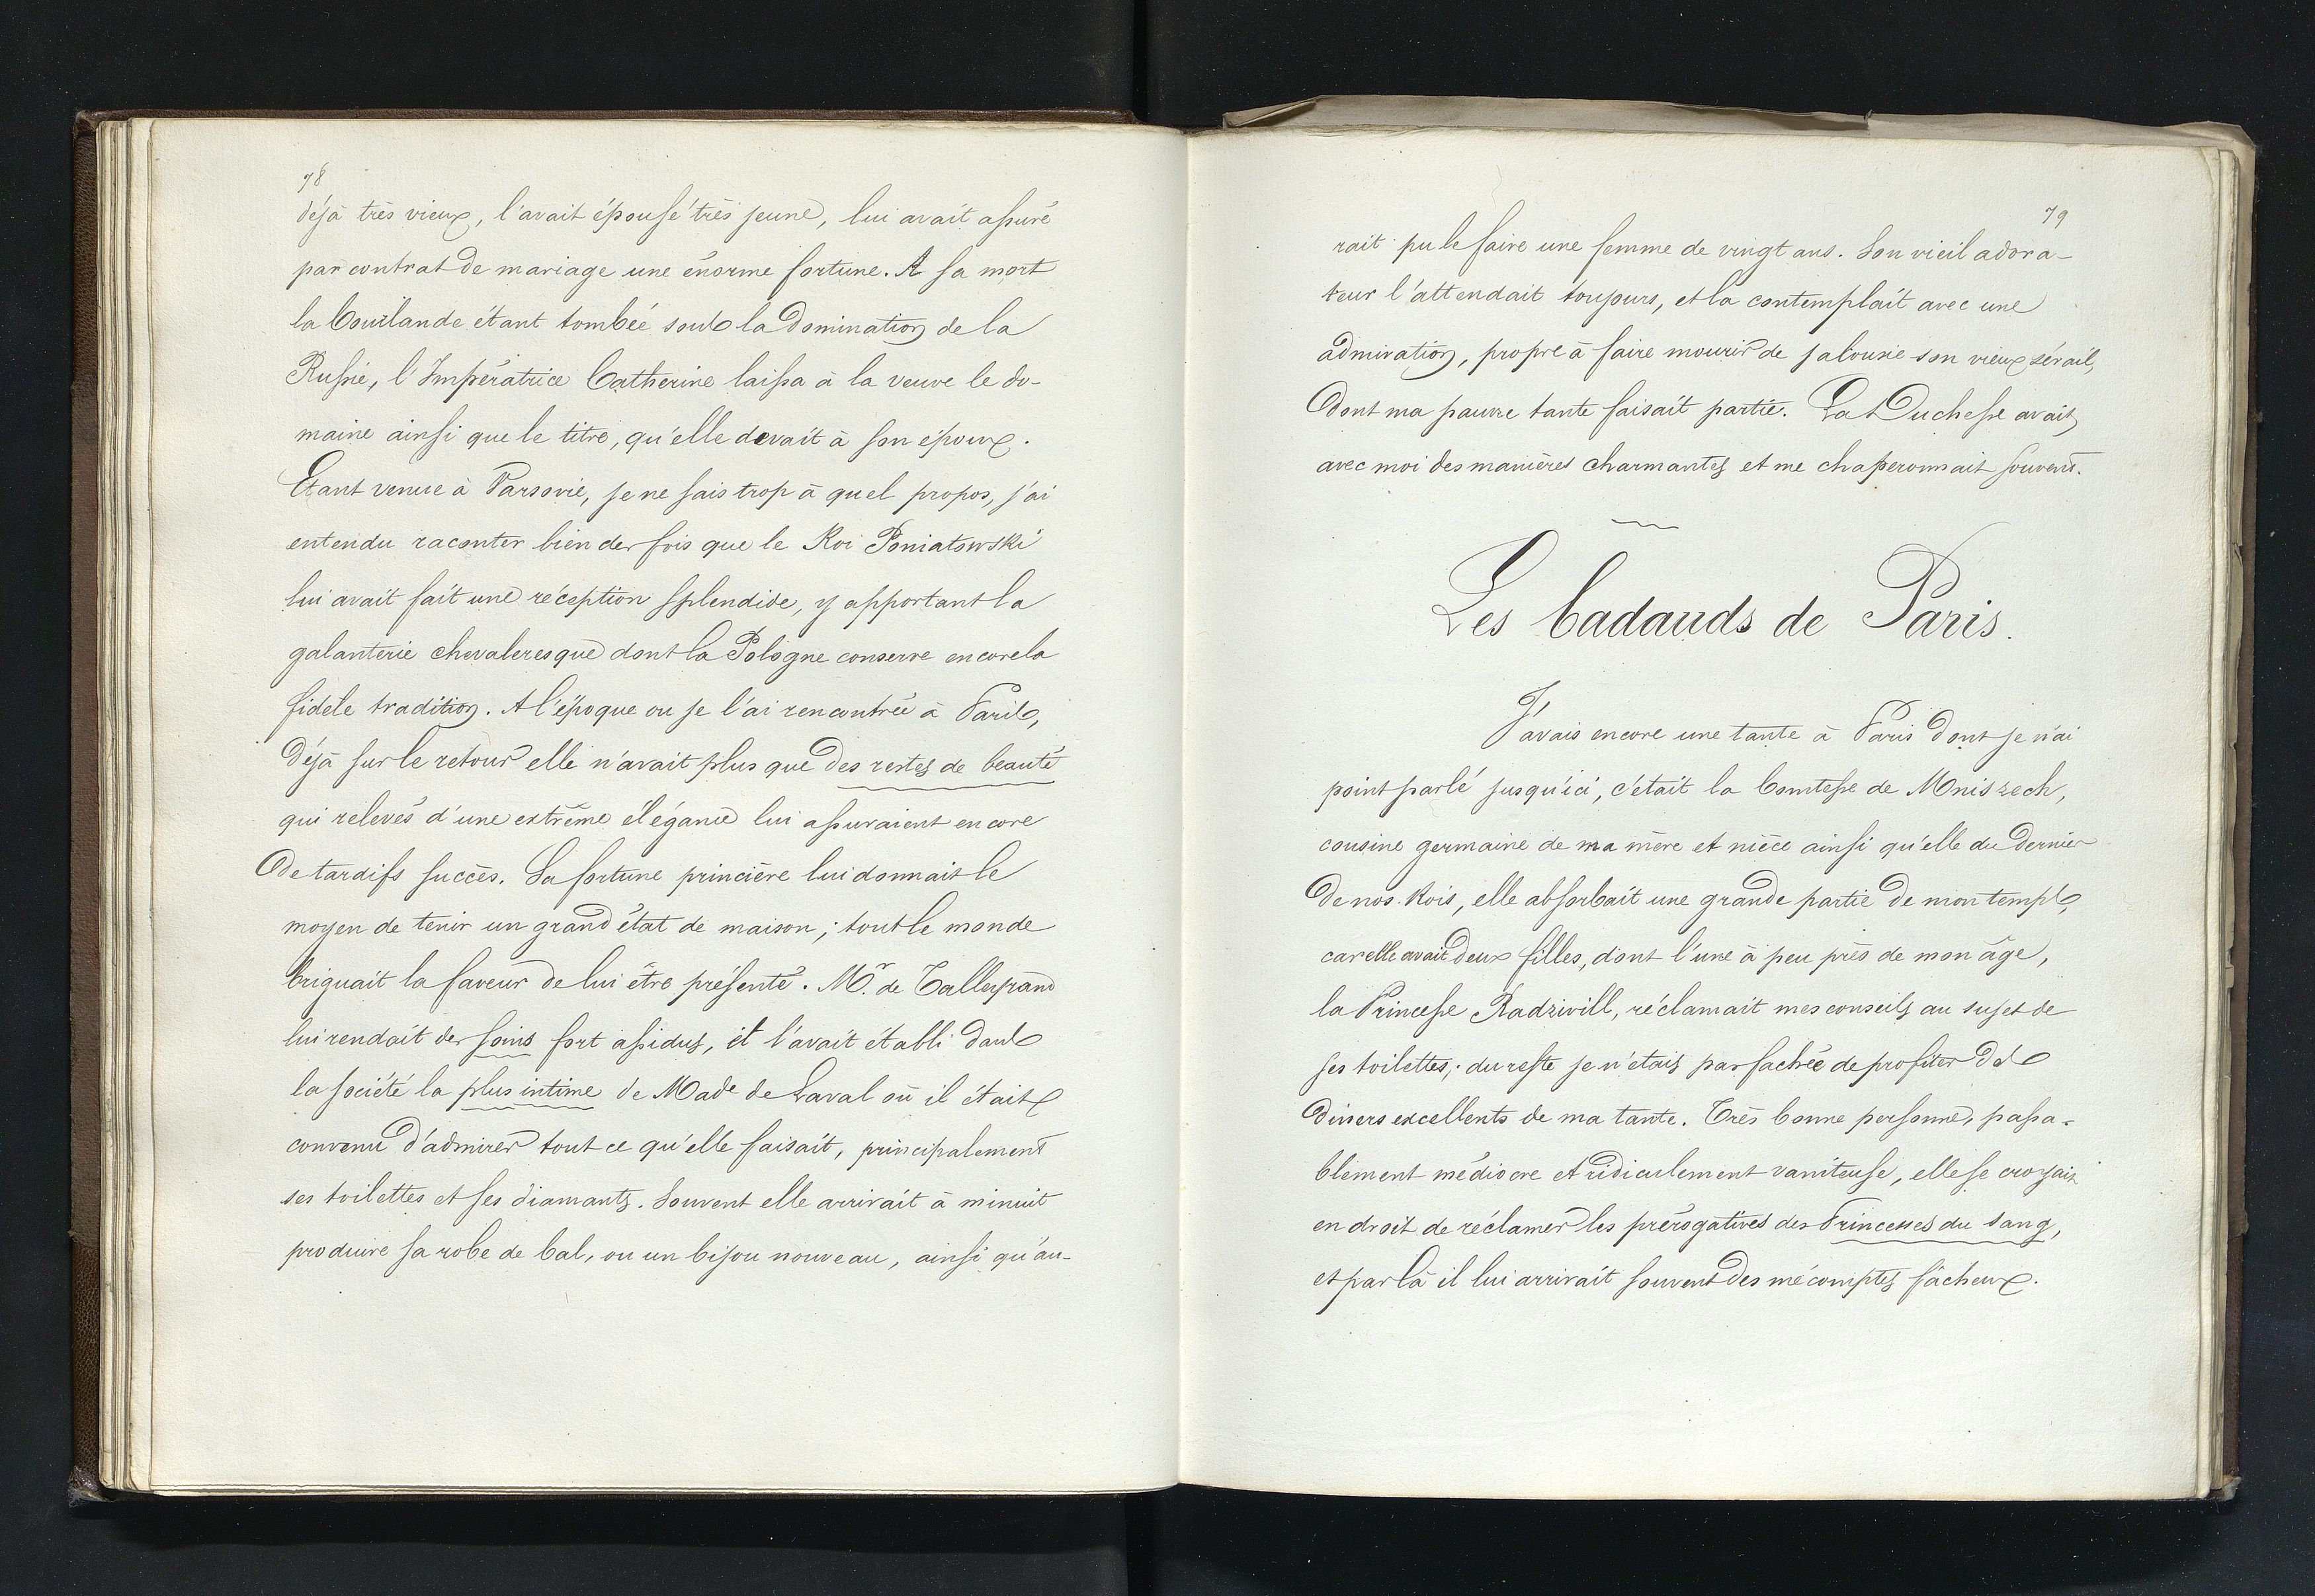 78
déjà très vieux, l'avait épousé très jeune, lui avait assuré
par contrat de mariage une énorme fortune. A sa mort
la Courlande étant tombée sous la domination de la
Russie, l'Impératrice Catherine laissa à la veuve le do-
maine ainsi que le titre, qu'elle devait à son époux.
Etant venue à Varsovie, je ne sais trop à quel propos, j'ai
entendu raconter bien des fois que le Roi Poniatowski
lui avait fait une réception splendide, y apportant la
galanterie chevaleresque dont la Pologne conserve encore la
fidèle tradition. A l'époque ou je l'ai rencontrée à Paris,
déjà sur le retour elle n'avait plus que des restes de beauté
qui relevés d'une extrême élégance lui assuraient encore
de tardifs succès. Sa fortune princière lui donnait le
moyen de tenir un grand état de maison; tout le monde
briguait la faveur de lui être présenté. Mr. de Talleyrand
lui rendait des soins fort assidus, il l'avait établi dans
la société la plus intime de Made de Laval où il était
convenu d'admirer tout ce qu'elle faisait, principalement
ses toilettes et ses diamants. Souvent elle arrivait à minuit
produire sa robe de bal, ou un bijou nouveau, ainsi qu'au-
79
rait pu le faire une femme de vingt ans. Son vieil adora-
teur l'attendait toujours, et la contemplait avec une
admiration, propre à faire mourir de jalousie son vieux sérail,
dont ma pauvre tante faisait partie. La Duchesse avait
avec moi des manières charmantes et me chaperonnait souvent.
Les badauds de Paris.
J'avais encore une tante à Paris dont je n'ai
point parlé jusqu'ici, c'était la Comtesse de Mniszech,
cousine germaine de ma mère et nièce ainsi qu'elle du dernier
de nos Rois, elle absorbait une grande partie de mon temps,
car elle avait deux filles, dont l'une à peu près de mon âge,
la Princesse Radziwill, réclamait mes conseils au sujet de
ses toilettes; du reste je n'étais pas fachée de profiter des
diners excellents de ma tante. Très bonne personne, passa-
blement médiocre et ridiculement vaniteuse, elle se croyait
en droit de réclamer les prérogatives des Princesses du sang,
et par là il lui arrivait souvent des mécomptes fâcheux.